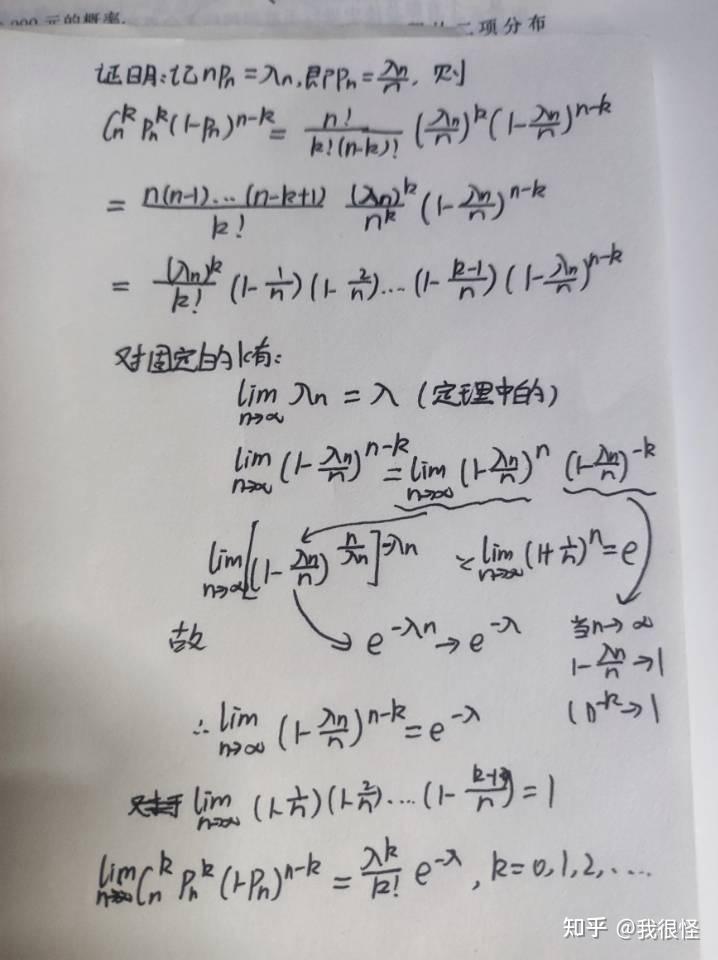 000 元的概率.
二项分布
证明:记 npₙ = λₙ,即 pₙ = λₙ/n , 则
Cₙᵏ Pₙᵏ (1-pₙ)ⁿ⁻ᵏ = n!/(k!(n-k)!) (λₙ/n)ᵏ (1-λₙ/n)ⁿ⁻ᵏ
= n(n-1)…(n-k+1)/k! (λₙ)ᵏ/nᵏ (1-λₙ/n)ⁿ⁻ᵏ
= (λₙ)ᵏ/k! (1-1/n)(1-2/n)…(1-(k-1)/n)(1-λₙ/n)ⁿ⁻ᵏ
对固定的k有:
lim n→∞ λₙ = λ (定理中的)
lim n→∞ (1-λₙ/n)ⁿ⁻ᵏ = lim n→∞ (1-λₙ/n)ⁿ (1-λₙ/n)⁻ᵏ
lim n→∞ [(1-λₙ/n)^(n/λₙ)]^(-λₙ) ∵ lim n→∞ (1+1/n)ⁿ = e
故 e^(-λₙ) → e^(-λ) 当n→∞
1-λₙ/n → 1
∴ lim n→∞ (1-λₙ/n)ⁿ⁻ᵏ = e^(-λ) (1)⁻ᵏ → 1
lim n→∞ (1-1/n)(1-2/n)…(1-(k-1)/n) = 1
lim n→∞ Cₙᵏ Pₙᵏ (1-Pₙ)ⁿ⁻ᵏ = λᵏ/k! e^(-λ) , k=0,1,2,…
知乎 @我很怪